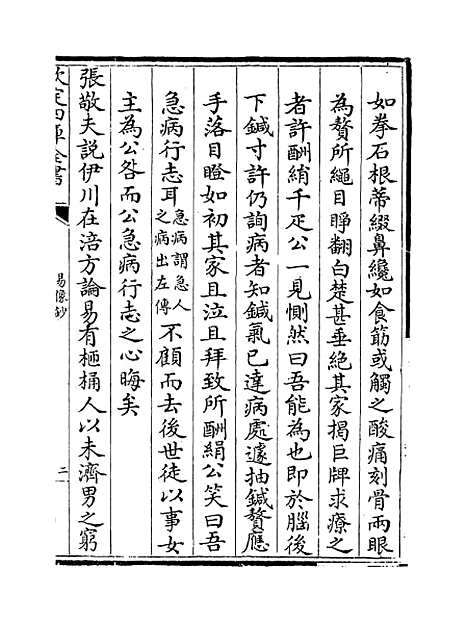 如拳石根蔕綴鼻纔如食筯或觸之酸痛刻骨兩眼
為贅所繩目睁翻白楚甚垂絶其家揭巨牌求療之
者許酬絹千疋公一見惻然曰吾能為也即於腦後
下鍼寸許仍詢病者知鍼氣已達病處遽抽鍼贅應
手落目瞪如初其家且泣且拜致所酬絹公笑曰吾
急病行志耳急病謂急人之病出左傳不顧而去後世徒以事女
主為公咎而公急病行志之心晦矣
張敬夫説伊川在涪方論易有桶桶人以未濟男之窮
欽定四庫全書
易像鈔
三